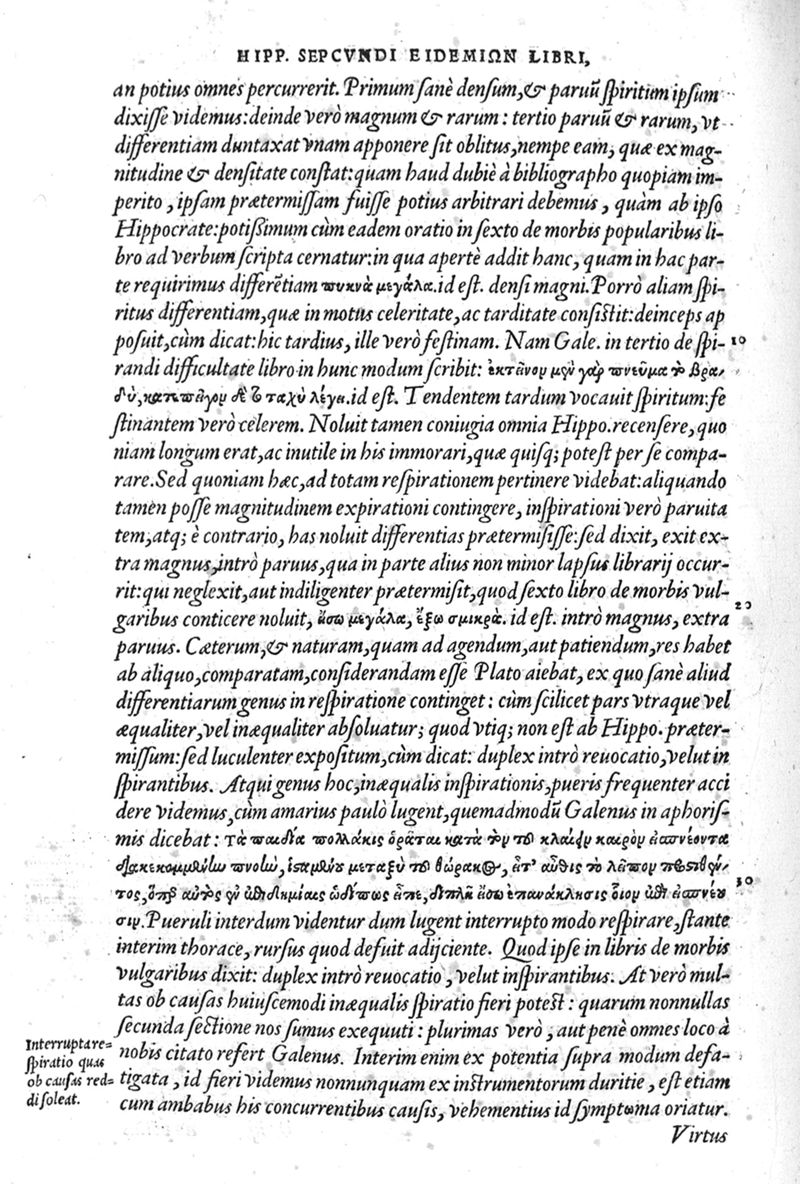 HIPP. SEPCVNDI EIDEMIΩN LIBRI,
an potius omnes percurrerit. Primum sanè densum, & paruū spiritum ipsum
dixisse videmus: deinde verò magnum & rarum: tertio paruū & rarum, vt
differentiam duntaxat vnam apponere sit oblitus, nempe eam, quæ ex mag-
nitudine & densitate constat: quam haud dubiè à bibliographo quopiam im-
perito, ipsam prætermissam fuisse potius arbitrari debemus, quàm ab ipso
Hippocrate: potissimum cùm eadem oratio in sexto de morbis popularibus li-
bro ad verbum scripta cernatur: in qua apertè addit hanc, quam in hac par-
te requirimus differētiam πυκνὰ μεγάλα. id est. densi magni. Porrò aliam spi-
ritus differentiam, quæ in motus celeritate, ac tarditate consistit: deinceps ap
posuit, cùm dicat: hic tardius, ille verò festinam. Nam Gale. in tertio de spi-
10
randi difficultate libro in hunc modum scribit: ἐκτᾶνον μὲν γὰρ πνεῦμα τὸ βρα-
δὺ, λέγει. id est. Tendentem tardum vocauit spiritum: fe
stinantem verò celerem. Noluit tamen coniugia omnia Hippo. recensere, quo
niam longum erat, ac inutile in his immorari, quæ quisq; potest per se compa-
rare. Sed quoniam hæc, ad totam respirationem pertinere videbat: aliquando
tamen posse magnitudinem expirationi contingere, inspirationi verò paruita
tem, atq; è contrario, has noluit differentias prætermisisse: sed dixit, exit ex-
tra magnus, intrò paruus, qua in parte alius non minor lapsus librarij occur-
rit: qui neglexit, aut indiligenter prætermisit, quod sexto libro de morbis vul-
garibus conticere noluit, ἔσω μεγάλα, ἔξω σμικρά. id est. intrò magnus, extra
20
paruus. Cæterum, & naturam, quam ad agendum, aut patiendum, res habet
ab aliquo, comparatam, considerandam esse Plato aiebat, ex quo sanè aliud
differentiarum genus in respiratione continget: cùm scilicet pars vtraque vel
æqualiter, vel inæqualiter absoluatur; quod vtiq; non est ab Hippo. præter-
missum: sed luculenter expositum, cùm dicat: duplex intrò reuocatio, velut in
spirantibus. Atqui genus hoc, inæqualis inspirationis, pueris frequenter acci
dere videmus, cùm amarius paulò lugent, quemadmodū Galenus in aphoris-
mis dicebat: τὰ παιδία πολλάκις ὁρᾶται κατὰ τὸν τοῦ κλαίειν καιρὸν ἀσπνέοντα
διακεκομμένην πνοὴν, ἱσταμένου μεταξὺ τοῦ θώρακος, εἶτ' αὖθις τὸ λεῖπον προστιθέν-
τος, ὅπερ αὐτὸς ἐν ἐπιδημίαις ὡδίπως εἶπε, διπλῆ εἴσω ἐπανάκλησις οἷον ἐπεισπνέου
30
σιν. Pueruli interdum videntur dum lugent interrupto modo respirare, stante
interim thorace, rursus quod defuit adijciente. Quod ipse in libris de morbis
vulgaribus dixit: duplex intrò reuocatio, velut inspirantibus. At verò mul-
tas ob causas huiuscemodi inæqualis spiratio fieri potest: quarum nonnullas
secunda sectione nos sumus exequuti: plurimas verò, aut penè omnes loco à
nobis citato refert Galenus. Interim enim ex potentia supra modum defa-
tigata, id fieri videmus nonnunquam ex instrumentorum duritie, est etiam
cum ambabus his concurrentibus causis, vehementius id symptωma oriatur.
Interrupta re=
spiratio quas
ob causas red=
di soleat.
Virtus